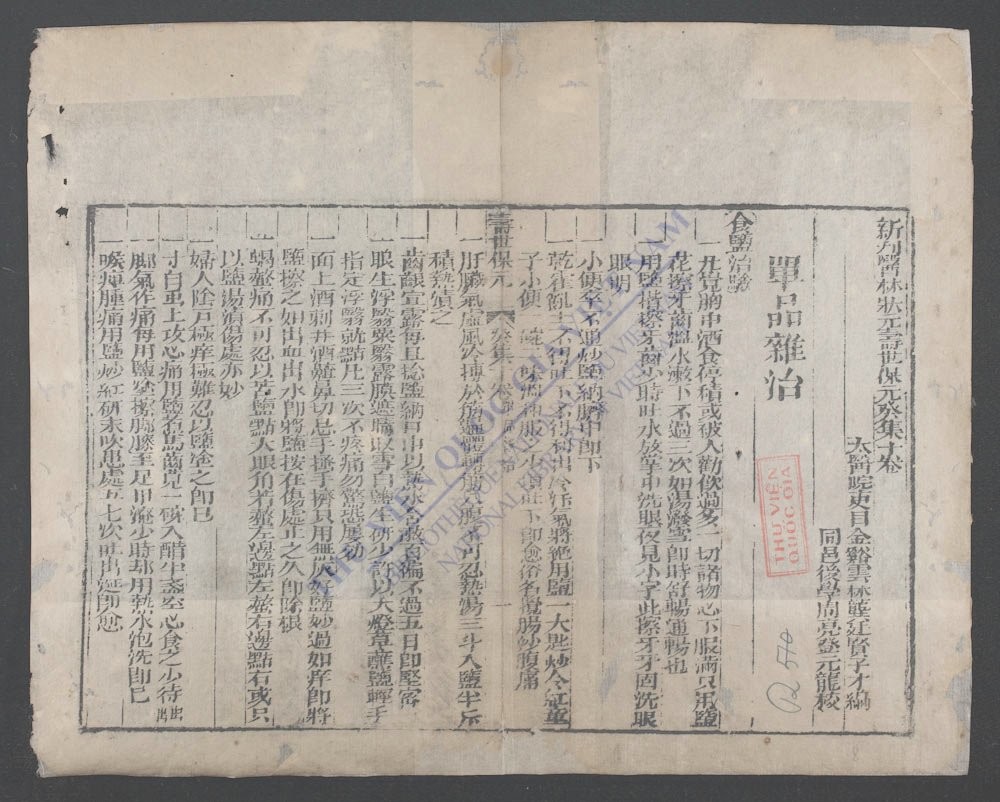 新刊醫林狀元壽世保元癸集十卷
太醫院吏目金谿雲林龔廷賢子才編
同邑後學周亮登元龍校
單品雜治
食鹽治驗
一凡覺胸中酒食停積或被人勸飲過多一切諸物心下服滿只用鹽
花擦牙齒溫水漱下不過三次如湯潑雪卽時舒暢通暢也
一用鹽揩擦牙齒少時吐水放掌中洗眼夜見小字此擦牙牙固洗眼
眼明
一小便不通炒鹽納臍中卽下
一乾霍亂上不得吐下不得利出冷汗氣將絶用鹽一大匙炒令紅童
子小便一溫和服之少頃吐下卽愈俗名攪腸紗腹痛
壽世保元
癸集
一
一肝臟氣虛風冷搏於筋遍體轉入腹不可忍熱湯三斗入鹽半斤
積熱漬之
一齒齦宣露每旦捻鹽納口中以熱水含漱百遍不過五日卽堅密
一眼生浮翳粟翳露膜遮睛取雪白鹽生研少許以大燈草蘸鹽輕手
指定浮翳就點凡三次不疼痛勿驚恐屢効
一面上酒刺并酒齇鼻切忌手捶手擠只用無灰好鹽炒過如痒卽將
鹽擦之如出血出水卽將鹽按在傷處止之久卽除根
一蝎螫痛不可忍以苦鹽點大眼角若螫左邊點左螫右邊點右或只
以鹽湯漬傷處亦妙
一婦人陰戶極痒極難忍以鹽塗之卽已
一寸白蟲上攻心痛用鹽石馬齒見一碗入醋半盞空心食之少待出
一脚氣作痛每用鹽擦脚膝至足甲淹少時却用熱水泡洗卽已
一喉痺腫痛用鹽炒紅研末吹患處五七次吐出延卽愈
THƯ VIỆN QUỐC GIA
THƯ VIỆN QUỐC GIA VIỆT NAM
NATIONAL LIBRARY